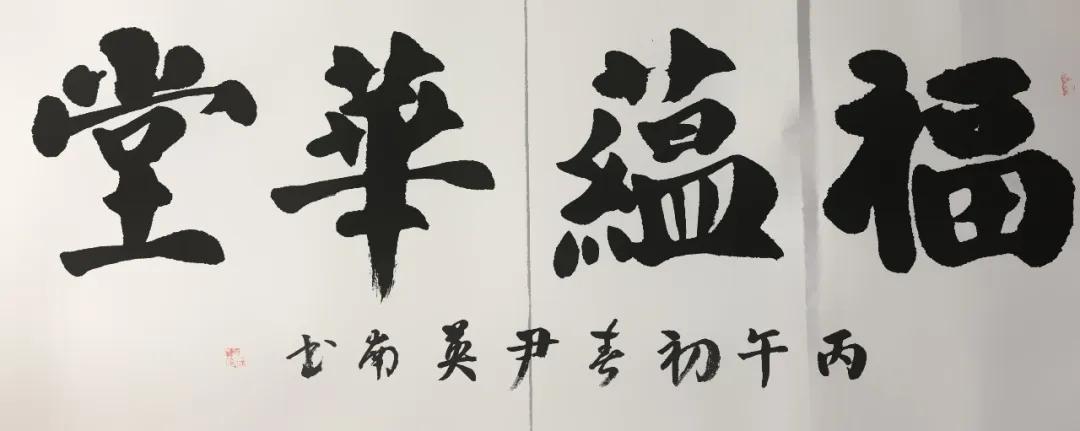 福蘊華堂
丙午初春尹英南书